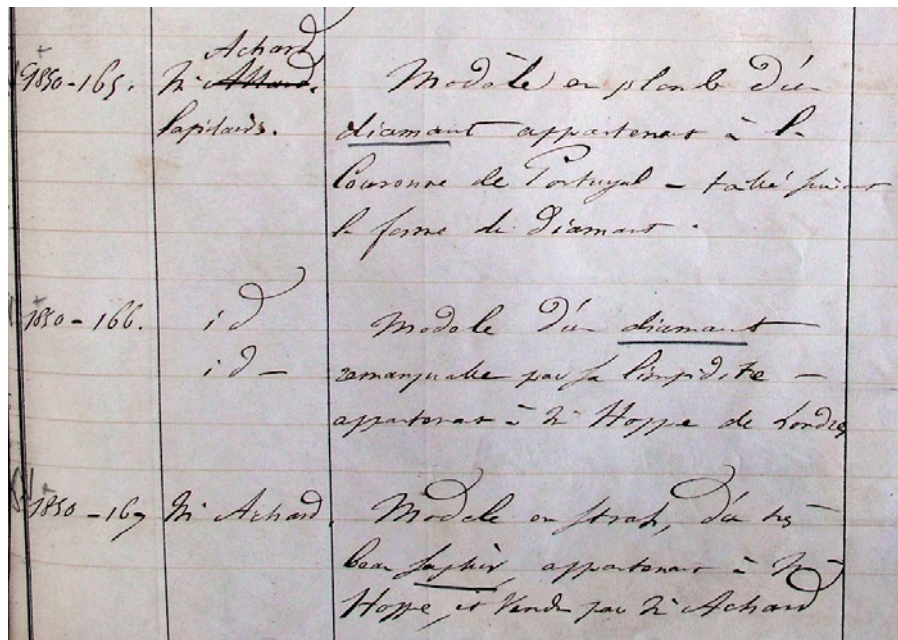 Achard
1850-165. Mr Allard. Modèle en plomb d'un
lapidaire. diamant appartenant à la
Couronne de Portugal – taillé suivant
la forme du Diamant.
1850-166. id Modèle d'un diamant
id – remarquable par sa limpidité –
appartenant à Mr Hoppe de Londres
1850-167 Mr Achard. Modèle en strass, d'un très
beau saphir, appartenant à Mr
Hoppe, et vendu par Mr Achard